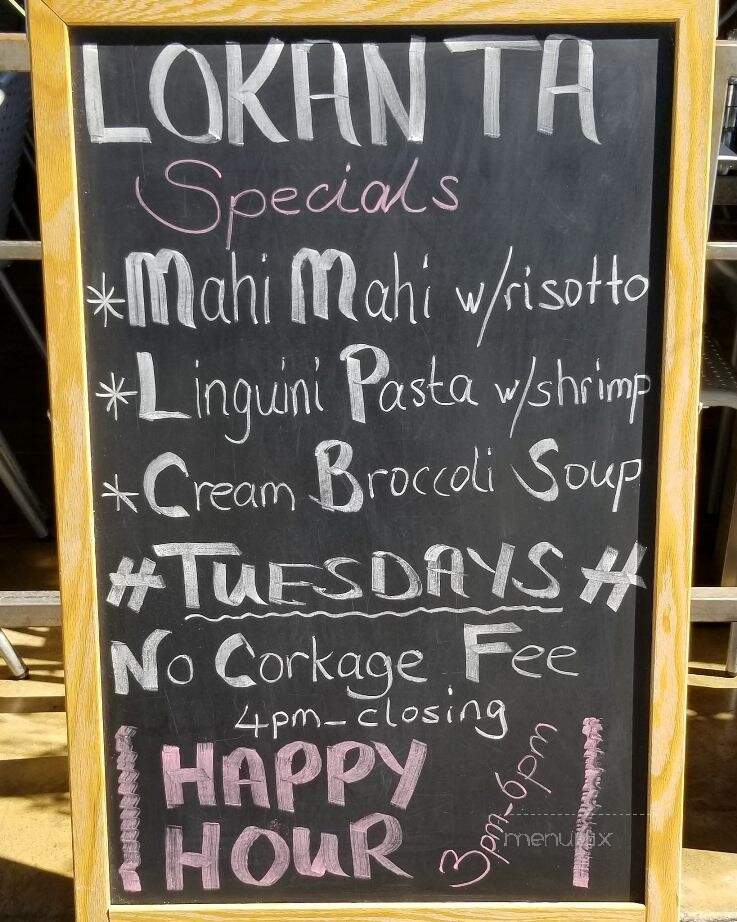 LOKANTA
Specials
*Mahi Mahi w/risotto
*Linguini Pasta w/shrimp
*Cream Broccoli Soup
#TUESDAYS#
No Corkage Fee
4pm-closing
HAPPY
HOUR
3pm-6pm
menupix